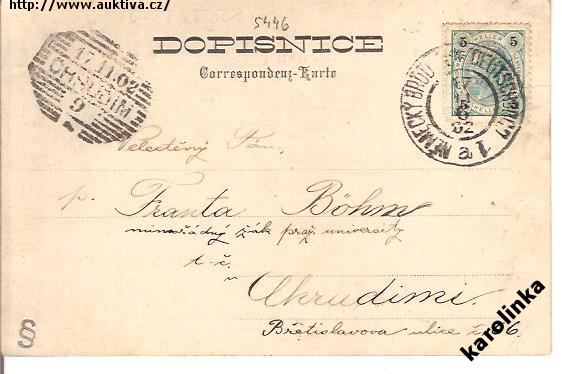 http://www.auktiva.cz/
5446
DOPISNICE
Correspondenz-Karte
5 HELLER 5
NĚMECKÝ BROD DEUTSCHBROD
02
1a
17.11.02
CHRUDIM
9
Velectěný Pán,
p. Franta Böhm
mimořádný žák praž. university
t. č.
v
Chrudimi.
Břetislavova ulice č. 6.
karolinka